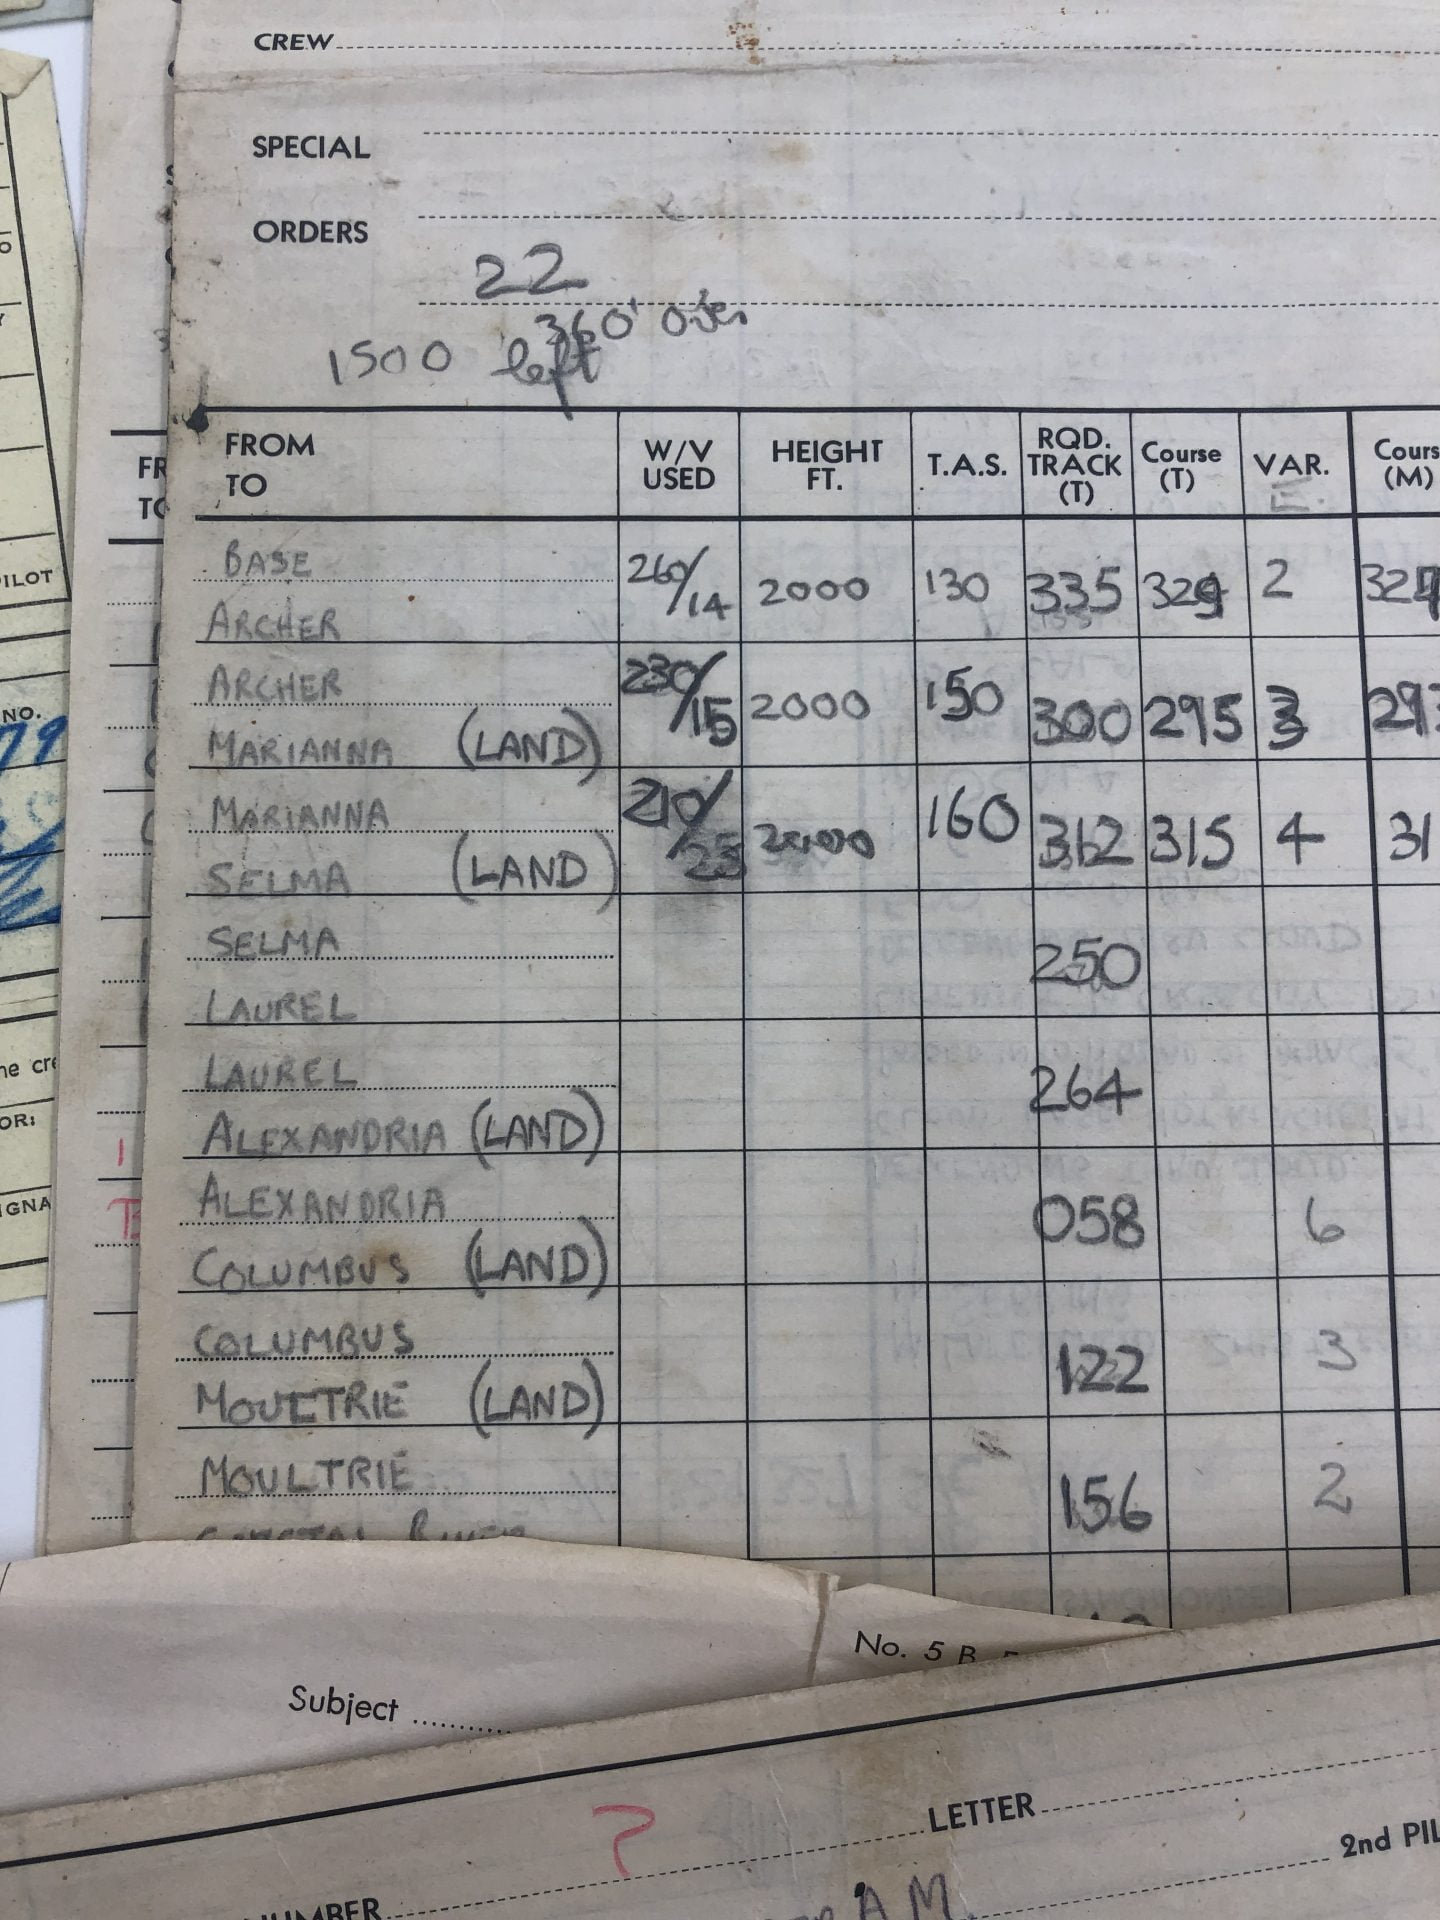 CREW
SPECIAL
ORDERS
22
360' over
1500 left
FROM
TO
W/V
USED
HEIGHT
FT.
T.A.S.
RQD.
TRACK
(T)
Course
(T)
VAR.
E.
Cours
(M)
BASE
ARCHER
260/14 2000 130 335 329 2 327
ARCHER
MARIANNA (LAND)
230/15 2000 150 300 295 3 29
MARIANNA
SELMA (LAND)
210/25 2000 160 312 315 4 31
SELMA
LAUREL
250
LAUREL
ALEXANDRIA (LAND)
264
ALEXANDRIA
COLUMBUS (LAND)
058 6
COLUMBUS
MOULTRIE (LAND)
122 3
MOULTRIE
CRYSTAL RIVER
156 2
FR
TO
PILOT
NO.
79
he cre
OR:
IGNA
No. 5 B
Subject
?
LETTER
2nd PIL
NUMBER
A.M.